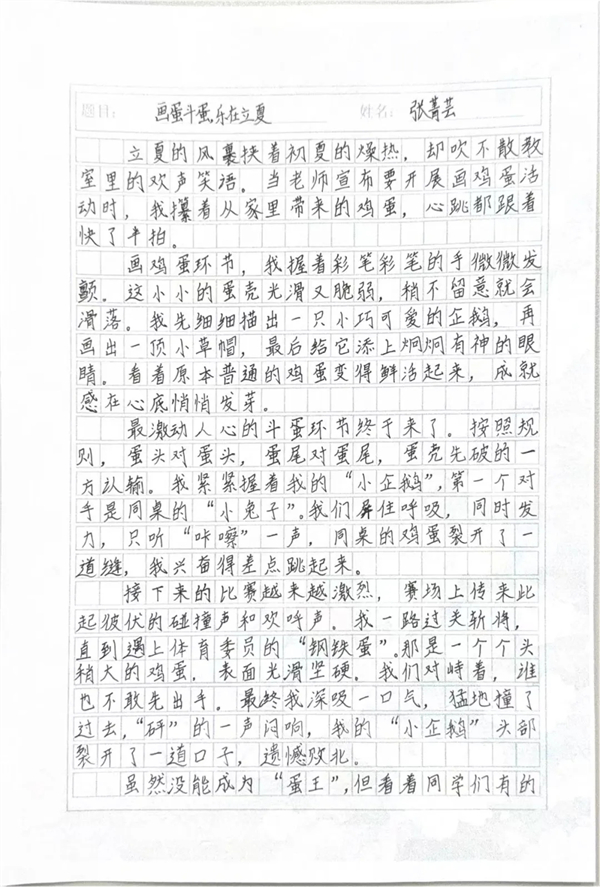 题目: 画蛋斗蛋,乐在立夏 姓名: 张菁芸
立夏的风裹挟着初夏的燥热，却吹不散教
室里的欢声笑语。当老师宣布要开展画鸡蛋活
动时，我攥着从家里带来的鸡蛋，心跳都跟着
快了半拍。
画鸡蛋环节，我握着彩笔彩笔的手微微发
颤。这小小的蛋壳光滑又脆弱，稍不留意就会
滑落。我先细细描出一只小巧可爱的企鹅，再
画出一顶小草帽，最后给它添上炯炯有神的眼
睛。看着原本普通的鸡蛋变得鲜活起来，成就
感在心底悄悄发芽。
最激动人心的斗蛋环节终于来了。按照规
则，蛋头对蛋头，蛋尾对蛋尾，蛋壳先破的一
方认输。我紧紧握着我的“小企鹅”，第一个对
手是同桌的“小兔子”。我们屏住呼吸，同时发
力，只听“咔嚓”一声，同桌的鸡蛋裂开了一
道缝，我兴奋得差点跳起来。
接下来的比赛越来越激烈，赛场上传来此
起彼伏的碰撞声和欢呼声。我一路过关斩将，
直到遇上体育委员的“钢铁蛋”。那是一个个头
稍大的鸡蛋，表面光滑坚硬。我们对峙着，谁
也不敢先出手。最终我深吸一口气，猛地撞了
过去，“砰”的一声闷响，我的“小企鹅”头部
裂开了一道口子，遗憾败北。
虽然没能成为“蛋王”，但看着同学们有的